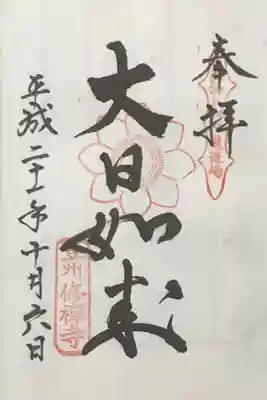 奉拝
大日如来
豆州修禅寺
平成二十一年十月六日